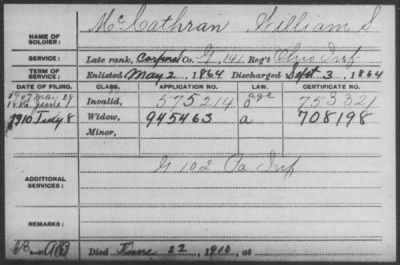 McCathran William S
NAME OF SOLDIER:
SERVICE: Late rank, Corporal Co. G, 141 Reg't Ohio Inf.
TERM OF SERVICE: Enlisted May 2, 1864 Discharged Sept 3, 1864
DATE OF FILING. CLASS. APPLICATION NO. LAW. CERTIFICATE NO.
Invalid, 575214 age 753321
1910 July 8 Widow, 945463 a 708198
Minor,
G 102 Pa Inf
ADDITIONAL SERVICES:
REMARKS:
Died June 22, 1910, at